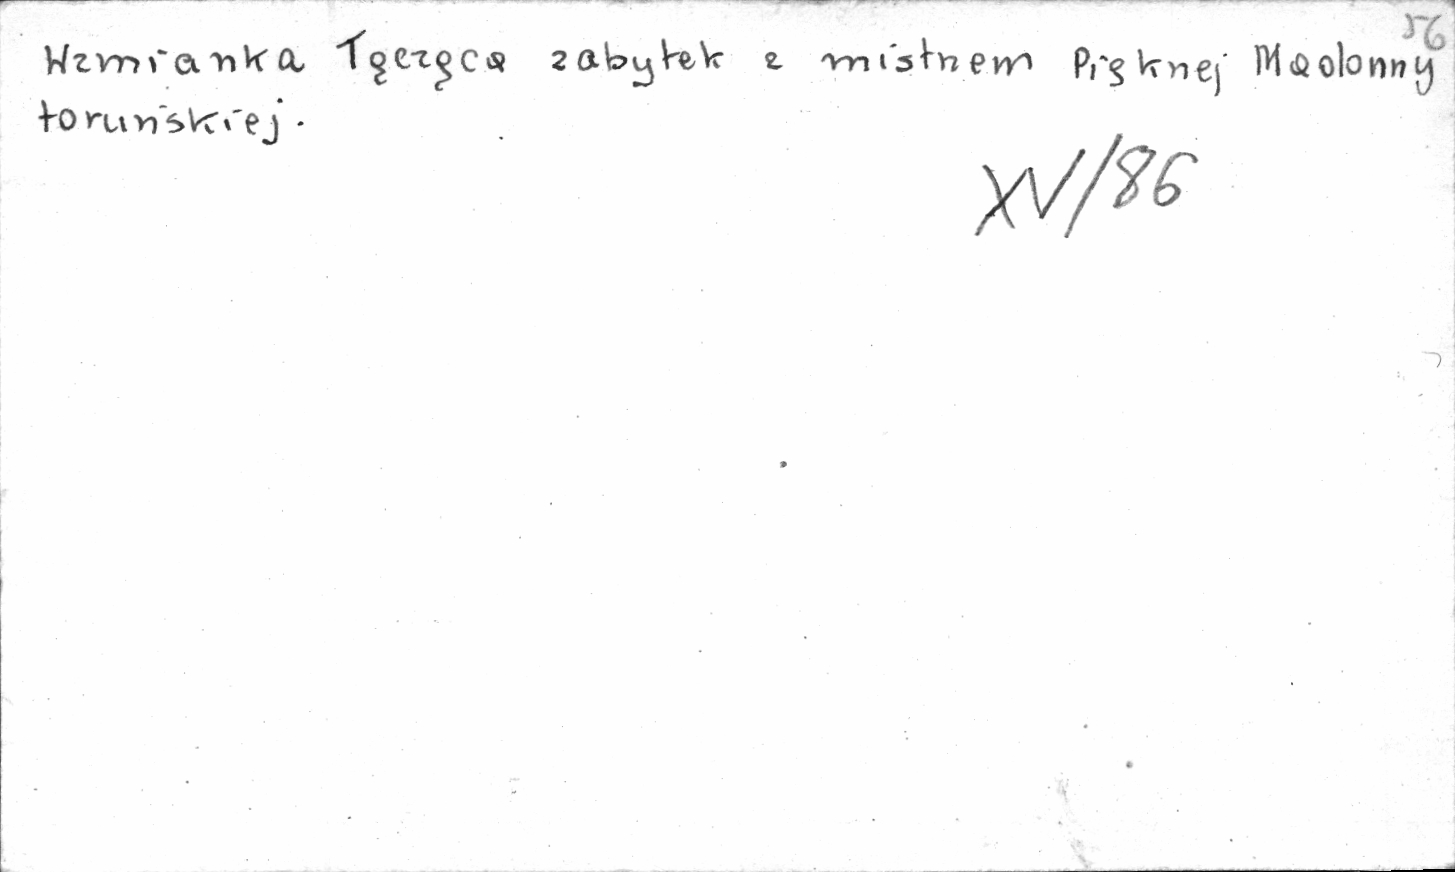 56
Wzmianka łącząca zabytek z mistrzem Pięknej Madonny
toruńskiej.
XV/86